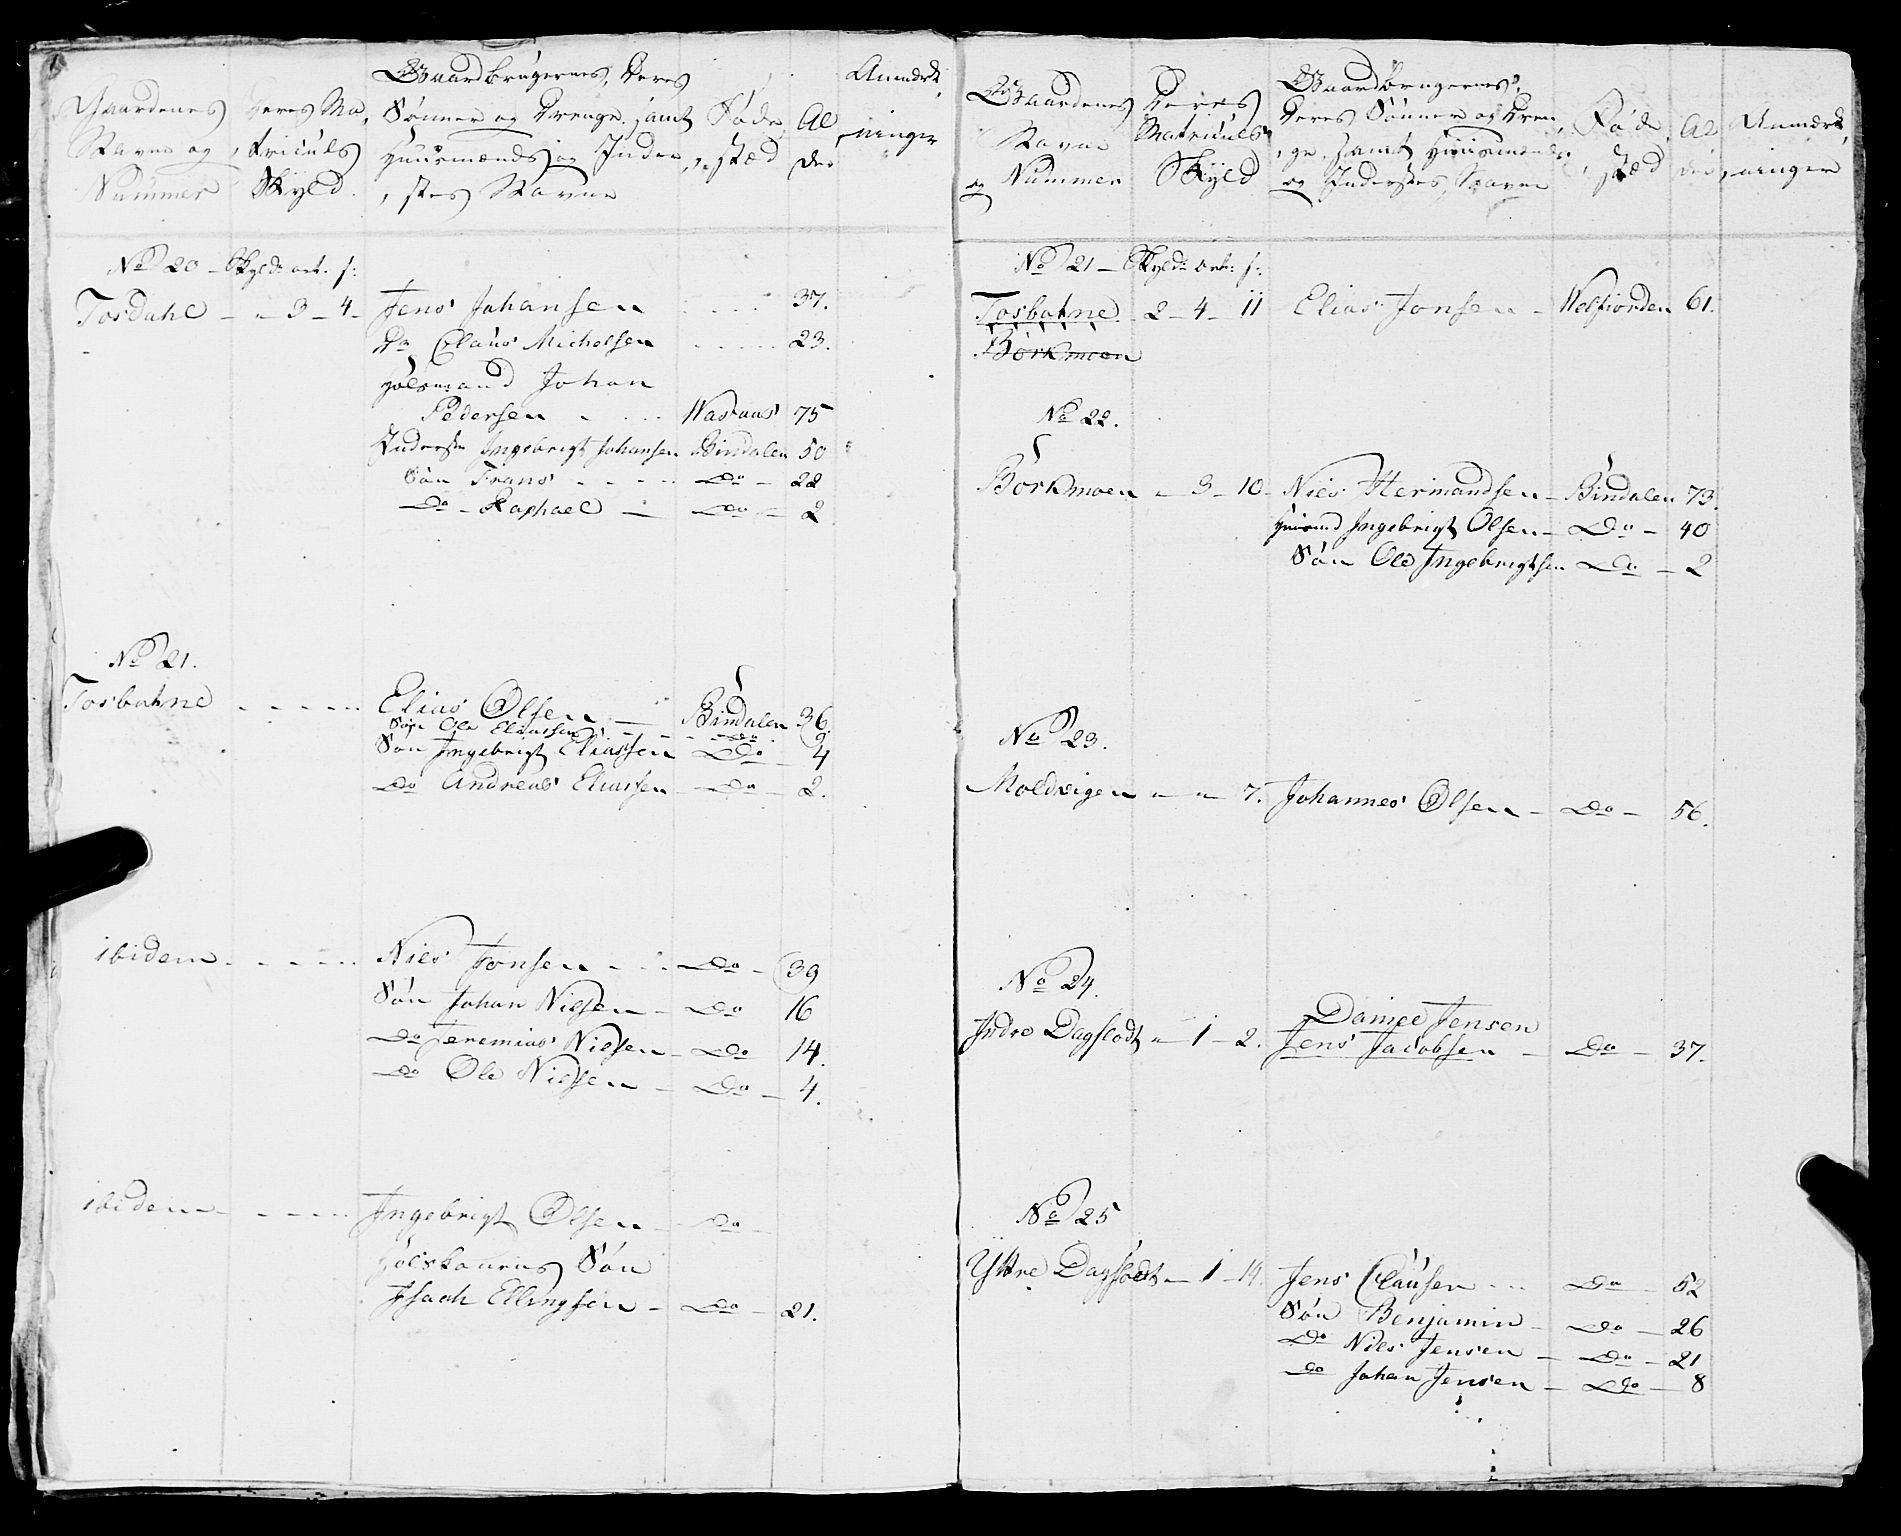 Gaardenes
Navne og
Nummer
Deres Ma,
triculs
Skyld.
Gaardbrugernes, Deres
Sønner og Drenge, samt
Huusmænds og Inder,
,stes Navne
Føde,
,stæd
Al
der
Anmærk,
,ninger
No 20 - Skyld ort. s:
Tosdahl - " 3 - 4 - Jens Johansen 37.
Do Claus Michelsen 23.
Johan
Pedersen Wassaas 75
Inderste Ingebrigt Johansen Bindalen 50
Søn Frans Do - 22
Do - Raphael - Do - 2
No 21.
Tosbatne Elias Olsen - Bindalen 36.
Søn Ole Eliassen Do 9
Søn Ingebrigt Eliassen Do - 4
Do Andreas Eliassen - Do - 2.
ibidem Niels Jonsen Do - 39
Søn Johan Nielsen - Do 16
Do Jeremias Nielsen - Do 14.
Do Ole Nielsen - Do - 4.
ibidem Ingebrigt Olsen - Do -
Søn
Isach Ellingsen - Do - 21.
Gaardenes
Navne
og Nummer
Deres
Matriculs
Skyld
Gaardbrugernes,
Deres Sønner og Dren,
,ge, samt Huusmænds
og Inderstes, Navne
Føde,
,stæd
Al
der
Anmærk,
,ninger
No 21 - Skyld ort: s:
Tosbotne 2 - 4 - 11 Elias Jonsen - Welfiorden 61.
Børkmoen
No 22.
Børkmoen - 3 - 10 - Niels Hermandsen - Bindalen 73.
Ingebrigt Olsen - Do - 40
Søn Ole Ingebrigtsen Do - 2
No 23.
Moldvigen - " - 7. Johannes Olsen - Do - 56.
No 24.
Daniel Jensen
Indre Dagslodt " 1 - 2. Jens Jacobsen - Do - 37.
No 25
Yttre Dagslodt - 1 - 14. Jens Clausen Do - 52
Søn Benjamin - Do - 26
Do Niels Jensen - Do - 21
do Johan Jensen - Do - 8